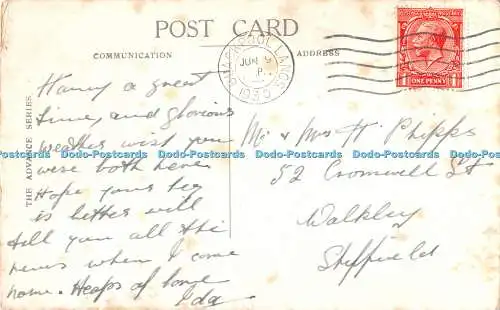 POST CARD
COMMUNICATION
ADDRESS
THE ADVANCE SERIES
BLACKPOOL LANCS
JUN 9
P
1930
ONE PENNY
Having a great
time, and glorious
weather wish you
were both here
Hope your leg
is better will
tell you all the
news when I come
home. Heaps of love
Ida
Mr & Mrs H. Phipps
52 Cromwell St
Walkley
Sheffield
Dodo-Postcards Dodo-Postcards Dodo-Postcards Dodo-Postcards Dodo-Postcards Dodo-Postcards